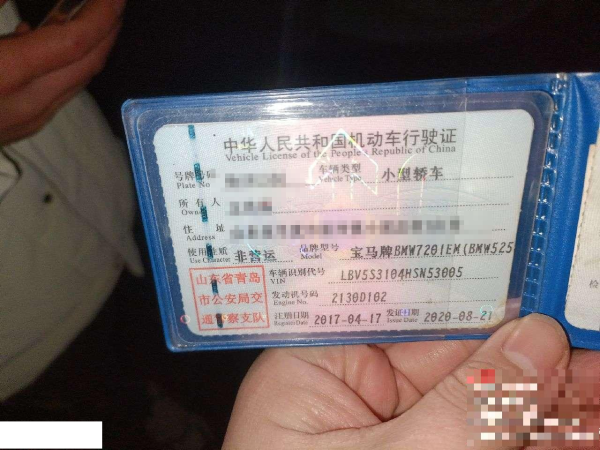 中华人民共和国机动车行驶证
Vehicle License of the People's Republic of China
号牌号码 车辆类型 小型轿车
Plate No Vehicle Type
所有人
Owner
住址
Address
使用性质 非营运 品牌型号 宝马牌BMW7201EM(BMW525
Use Character Model
山东省青岛
市公安局交
通警察支队
车辆识别代号 LBV5S3104HSN53005
VIN
发动机号码 2130D102
Engine No.
注册日期 2017-04-17 发证日期 2020-08-21
Register Date Issue Date
检